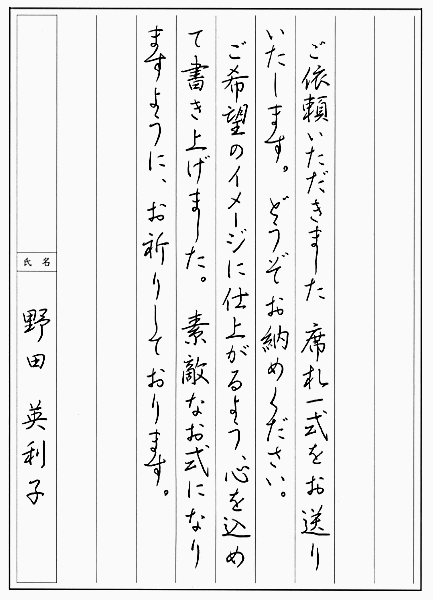 ご依頼いただきました席札一式をお送り
いたします。どうぞお納めください。
ご希望のイメージに仕上がるよう、心を込め
て書き上げました。素敵なお式になり
ますように、お祈りしております。
氏名
野田英利子